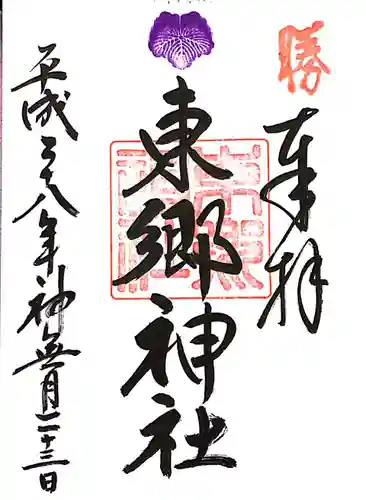 勝
奉拝
東郷神社
平成二十八年神無月二十三日